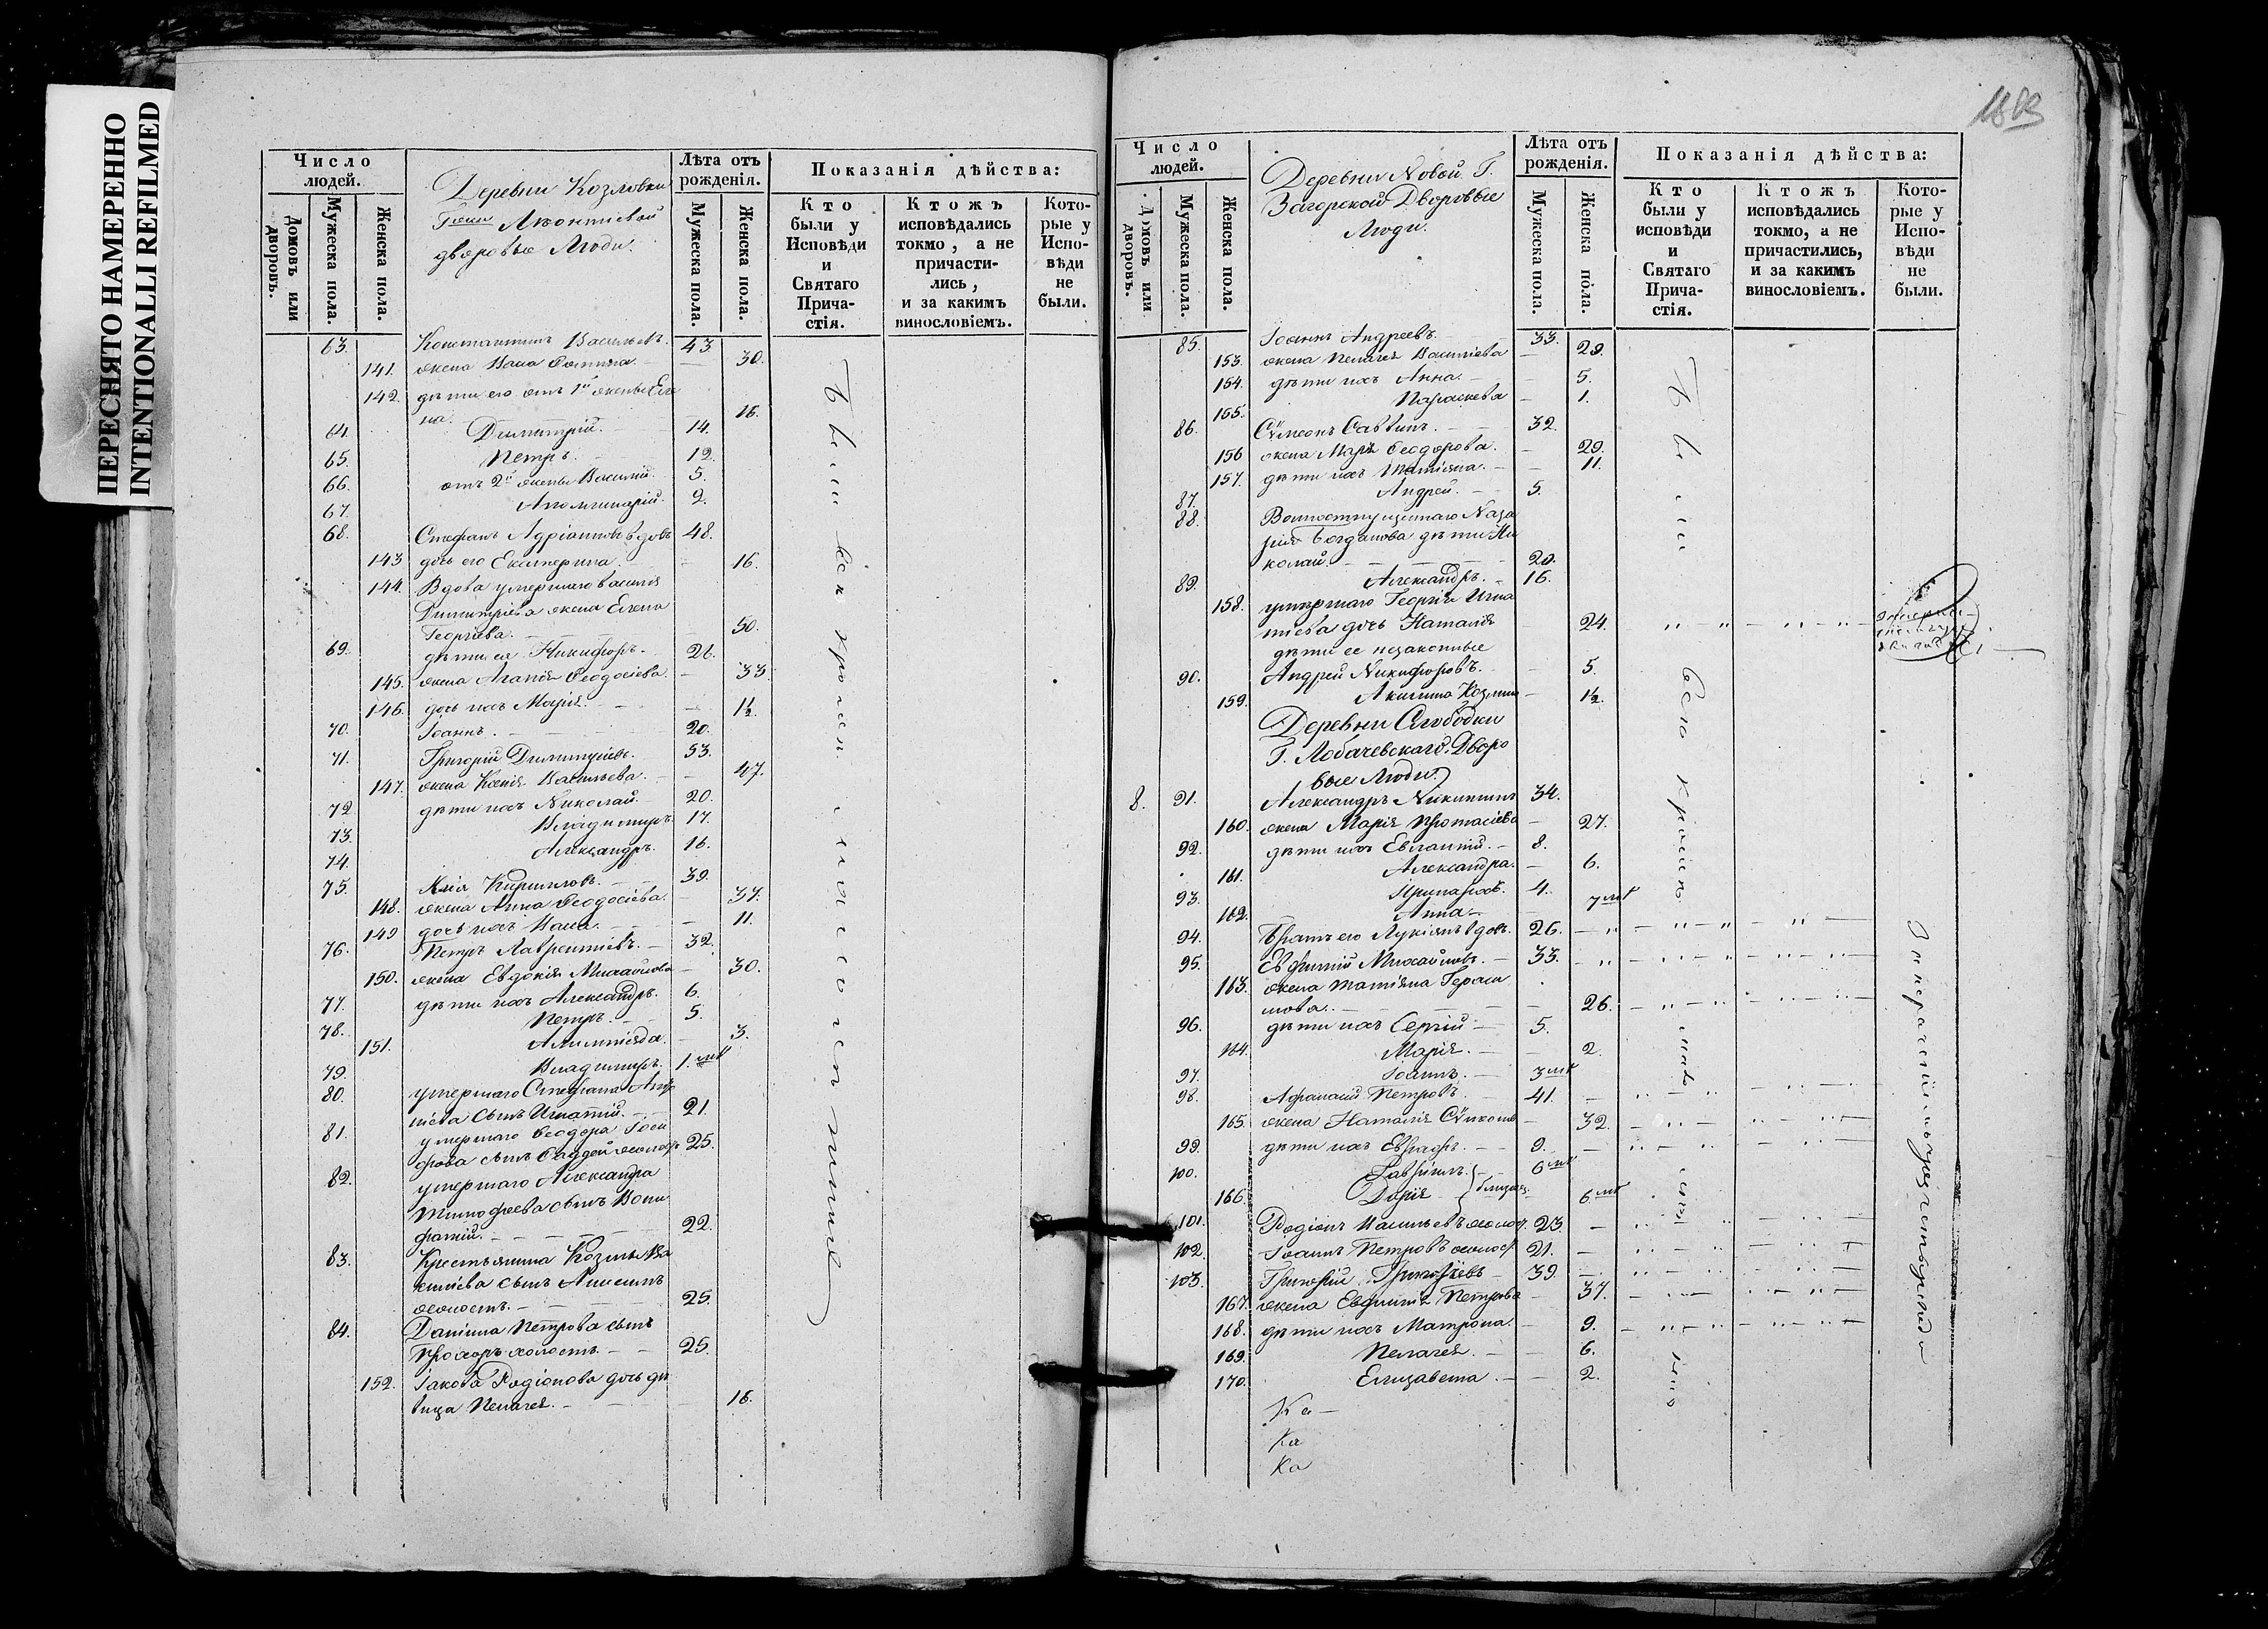 ПЕРЕСНЯТО НАМЕРЕННО
INTENTIONALLI REFILMED
Число людей.
Домовъ или дворовъ.
Мужеска пола.
Женска пола.
Деревни Козловки
Гжи Леонтіевой
дворовые Люди.
Лѣта отъ рожденія.
Мужеска пола.
Женска пола.
Показанія дѣйства:
Кто были у Исповѣди и Святаго Прича-стія.
Ктожъ исповѣдались токмо, а не причасти-лись, и за какимъ винословіемъ.
Кото-рые у Испо-вѣди не были.
63. Константинъ Васильевъ. 43
141. жена Васса 30.
142. дѣти его отъ 1й жены Еле
на. 16.
64. Димитрій. 14.
65. Петръ. 12.
66. отъ 2й жены Василій. 5.
67. Аполлинарій. 2.
68. Стефанъ Адріановъ вдовъ 48.
143 дочь его Екатерина. 16.
144. Вдова умершаго Василія
Димитріева жена Елена
Георгіева. 50.
69. дѣти ея Никифоръ. 26.
145. жена Агапія Ѳеодосіева. 33.
146. дочь ихъ Марія. 1½.
70. Іоаннъ. 20.
71. Григорій Димитріевъ. 53.
147. жена Ксенія Васильева. 47.
72 дѣти ихъ Николай. 20.
73. Владимиръ. 17.
74. Александръ. 16.
75. Илія Кирилловъ. 39.
148. жена Анна Ѳеодосіева. 37.
149 дочь ихъ Васса. 11.
76. Петръ Лаврентіевъ. 32.
150. жена Евдокія Михайлова 30.
77. дѣти ихъ Александръ. 6.
78. Петръ. 5.
151. Алимпіада. 3.
79. Владимиръ. 1. мѣ
80. умершаго Стефана
сынъ Игнатій. 21.
81. умершаго Ѳеодора Іоси
фова сынъ Ѳаддей холостъ 25.
82. умершаго Александра
Тимофеева сынъ Вони
фатій. 22.
83. Крестьянина Козмы Ва
силіева сынъ Анисимъ
холостъ. 25.
84. Даніила Петрова сынъ
Прохоръ холостъ. 25.
152. Іакова Родіонова дочь дѣ
вица Пелагея. 16.
Число людей.
Домовъ или дворовъ.
Мужеска пола.
Женска пола.
Деревни Новой Г.
Загорской Дворовые
Люди.
Лѣта отъ рожденія.
Мужеска пола.
Женска пола.
Показанія дѣйства:
Кто были у исповѣди и Святаго Прича-стія.
Ктожъ исповѣдались токмо, а не причастились, и за какимъ винословіемъ.
Кото-рые у Испо-вѣди не были.
85. Іоаннъ Андреевъ. 33.
153. жена Пелагея Василіева 29.
154. дѣти ихъ Анна. 5.
155. Параскева 1.
86. Сѵмеонъ Саввинъ. 32.
156 жена Марія Ѳеодорова. 29.
157. дѣти ихъ Татіяна. 11.
87. Андрей. 5.
88. Вольноотпущеннаго Наза
рія Богданова дѣти Ни
колай. 20.
89. Александръ. 16.
158. умершаго Георгія Игна
тіева дочь Наталія 24.
дѣти ее незаконные
90. Андрей Никифоровъ. 5.
159. Акилина 1½.
Деревни Слободки
Г. Лобачевскаго Дворо
вые Люди.
8. 91. Александръ Никитинъ 34.
160. жена Марія Протасіева 27.
92. дѣти ихъ Евлампій. 8.
161. Александра. 6.
93. Иринархъ. 4.
162. Анна. 7 мѣ
94. Братъ его Лукіянъ вдовъ. 26.
95. Евфимій Михайловъ. 33.
163. жена Татіяна Гераси
мова. 26.
96. дѣти ихъ Сергій 5.
164. Марія. 2.
97. Іоаннъ. 3 мѣ
98. Афанасій Петровъ. 41.
165. жена Наталія 32.
99. дѣти ихъ Евграфъ. 9.
100. Гавріилъ. 6 мѣ
166. Дарія близнец. 6 мѣ
101. Родіонъ Васильевъ холост. 23.
102. Іоаннъ Петровъ холост. 21.
103. Григорій Григорьевъ 39.
167. жена Евфимія Петрова 37.
168. дѣти ихъ Матрона. 9.
169. Пелагея. 6.
170. Елизавета. 2.
Ка
Ка
Ка